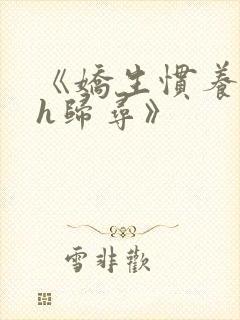 《嬌生慣養
h歸尋》
雪非歡